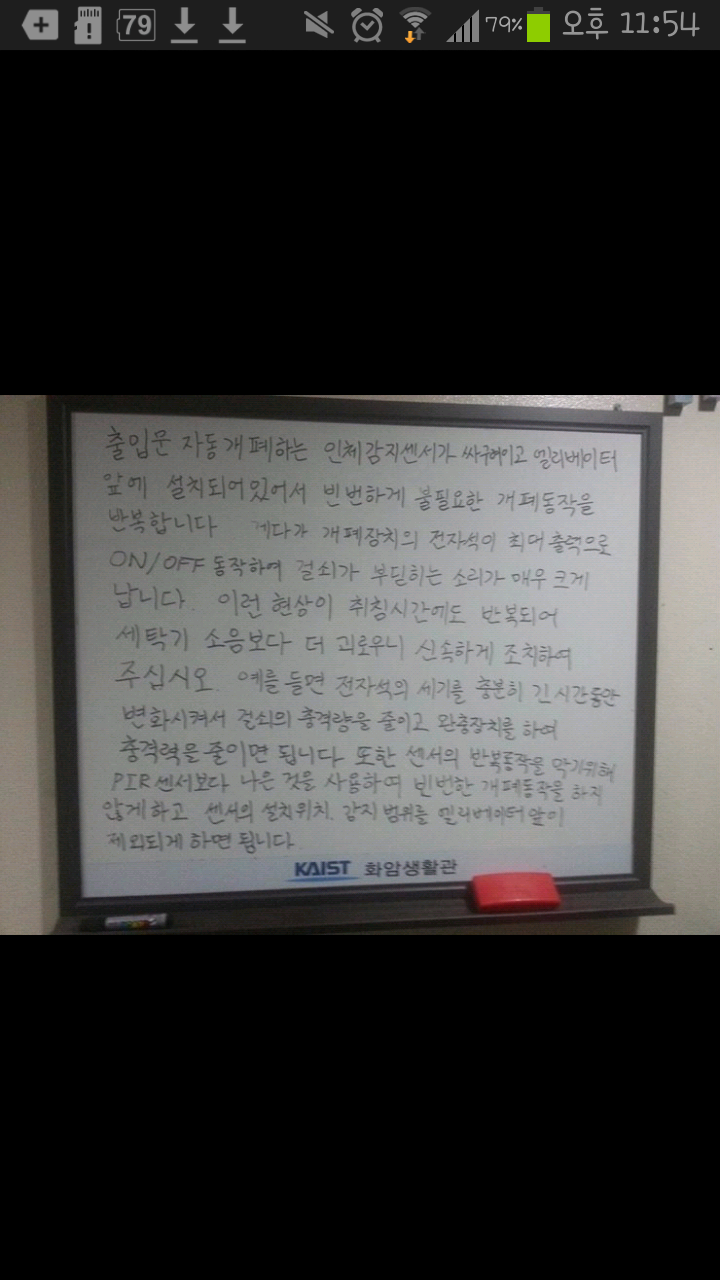 79
79% 오후 11:54
출입문 자동개폐하는 인체감지센서가 싸구려이고 엘리베이터
앞에 설치되어있어서 빈번하게 불필요한 개폐동작을
반복합니다 게다가 개폐장치의 전자석이 최대출력으로
ON/OFF 동작하여 걸쇠가 부딛히는 소리가 매우 크게
납니다. 이런 현상이 취침시간에도 반복되어
세탁기 소음보다 더 괴로우니 신속하게 조치하여
주십시오. 예를 들면 전자석의 세기를 충분히 긴 시간동안
변화시켜서 걸쇠의 충격량을 줄이고 완충장치를 하여
충격력을 줄이면 됩니다 또한 센서의 반복동작을 막기위해
PIR센서보다 나은 것을 사용하여 빈번한 개폐동작을 하지
않게하고 센서의 설치위치, 감지범위를 엘리베이터 앞이
제외되게 하면 됩니다.
KAIST 화암생활관